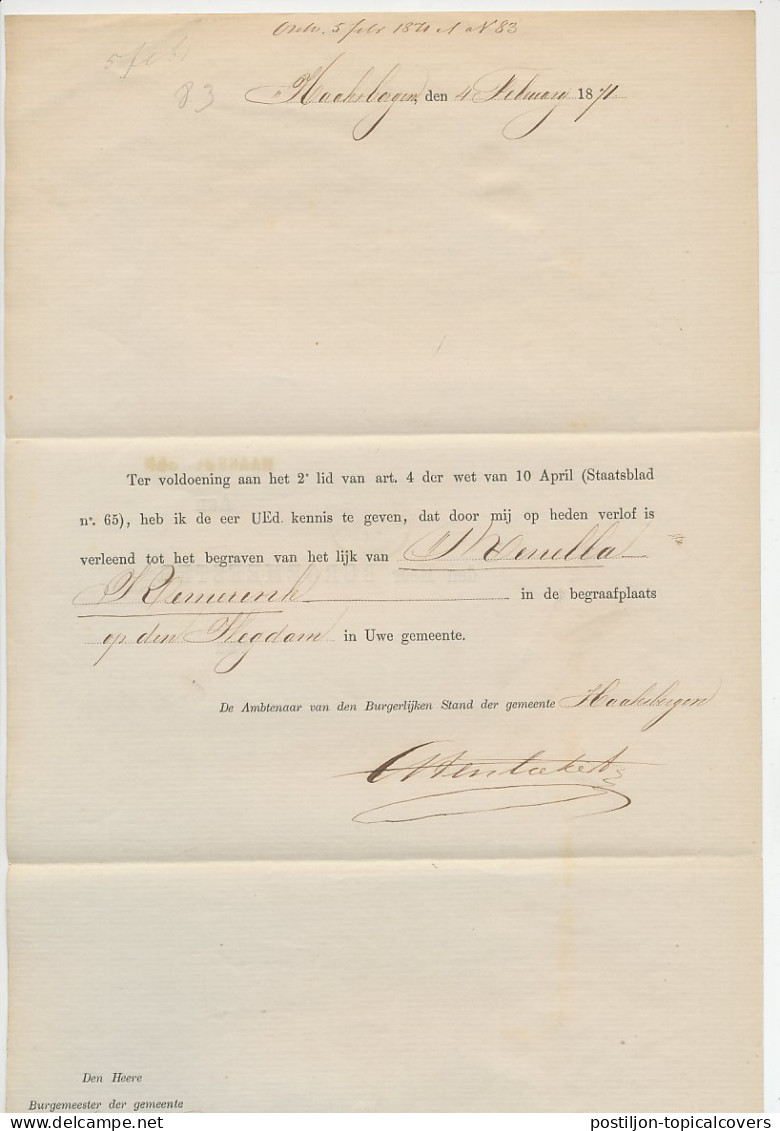 Ontv. 5 febr 1871 A No 83
5 feb
83
Haaksbergen, den 4 February 1871
Ter voldoening aan het 2e lid van art. 4 der wet van 10 April (Staatsblad
no. 65), heb ik de eer UEd. kennis te geven, dat door mij op heden verlof is
verleend tot het begraven van het lijk van
in de begraafplaats
op den Hegdam in Uwe gemeente.
De Ambtenaar van den Burgerlijken Stand der gemeente Haaksbergen
Den Heere
Burgemeester der gemeente
postiljon-topicalcovers